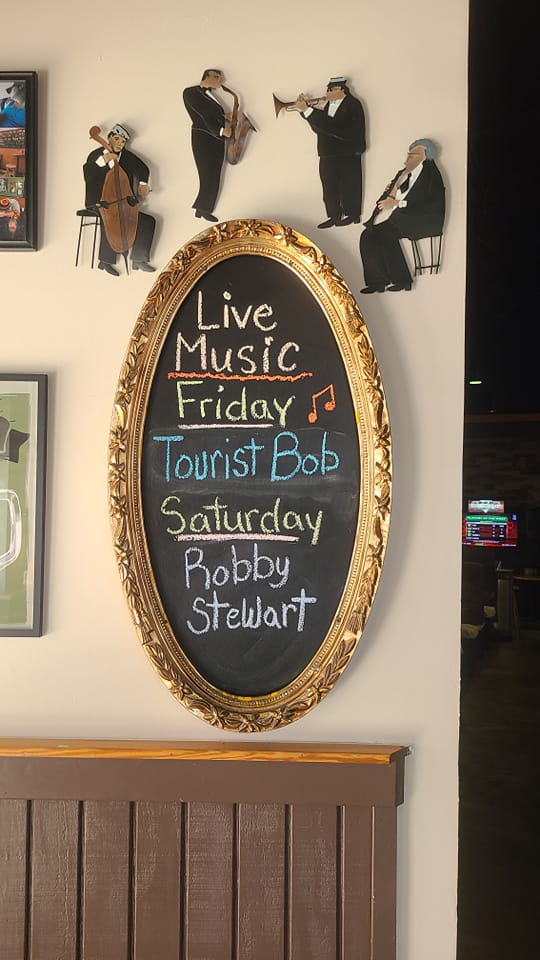 Live
Music
Friday
Tourist Bob
Saturday
Robby
Stewart